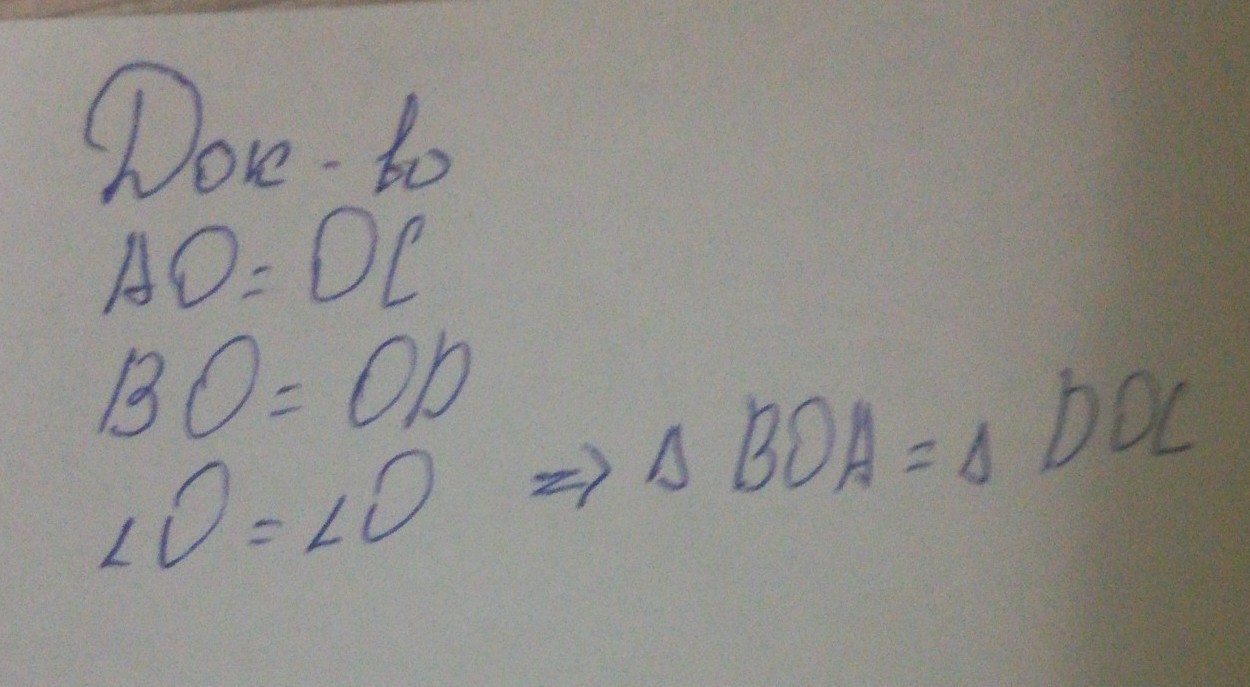 Док-во
AO = OC
BO = OD
∠O = ∠O => Δ BOA = Δ DOC